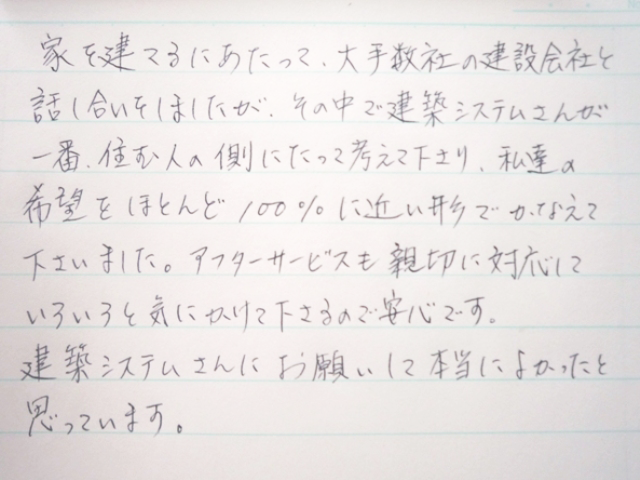 家を建てるにあたって、大手数社の建設会社と
話し合いをしましたが、その中で建築システムさんが
一番、住む人の側にたって考えて下さり、私達の
希望をほとんど100%に近い形でかなえて
下さいました。アフターサービスも親切に対応して
いろいろと気にかけて下さるので安心です。
建築システムさんにお願いして本当によかったと
思っています。